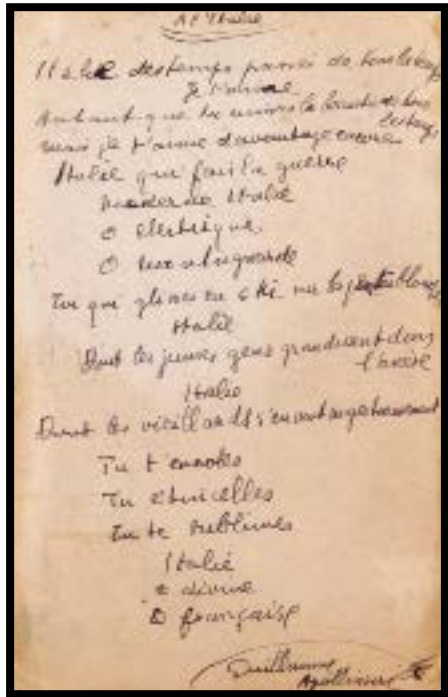 A l'Italie
Italie des temps passés de tous les temps
Je t'aime
Autant que tu aimes la beauté de tous
les temps
mais je t'aime davantage encore
Italie qui fait la guerre
Moderne Italie
O électrique
O
Toi que en été sur les
Italie
Dont les jeunes gens grandissent dans
Italie
Dont les vieillards s'en vont
Tu t'envoles
Tu étincelles
Tu te sublimes
Italie
O divine
O française
Guillaume
Apollinaire